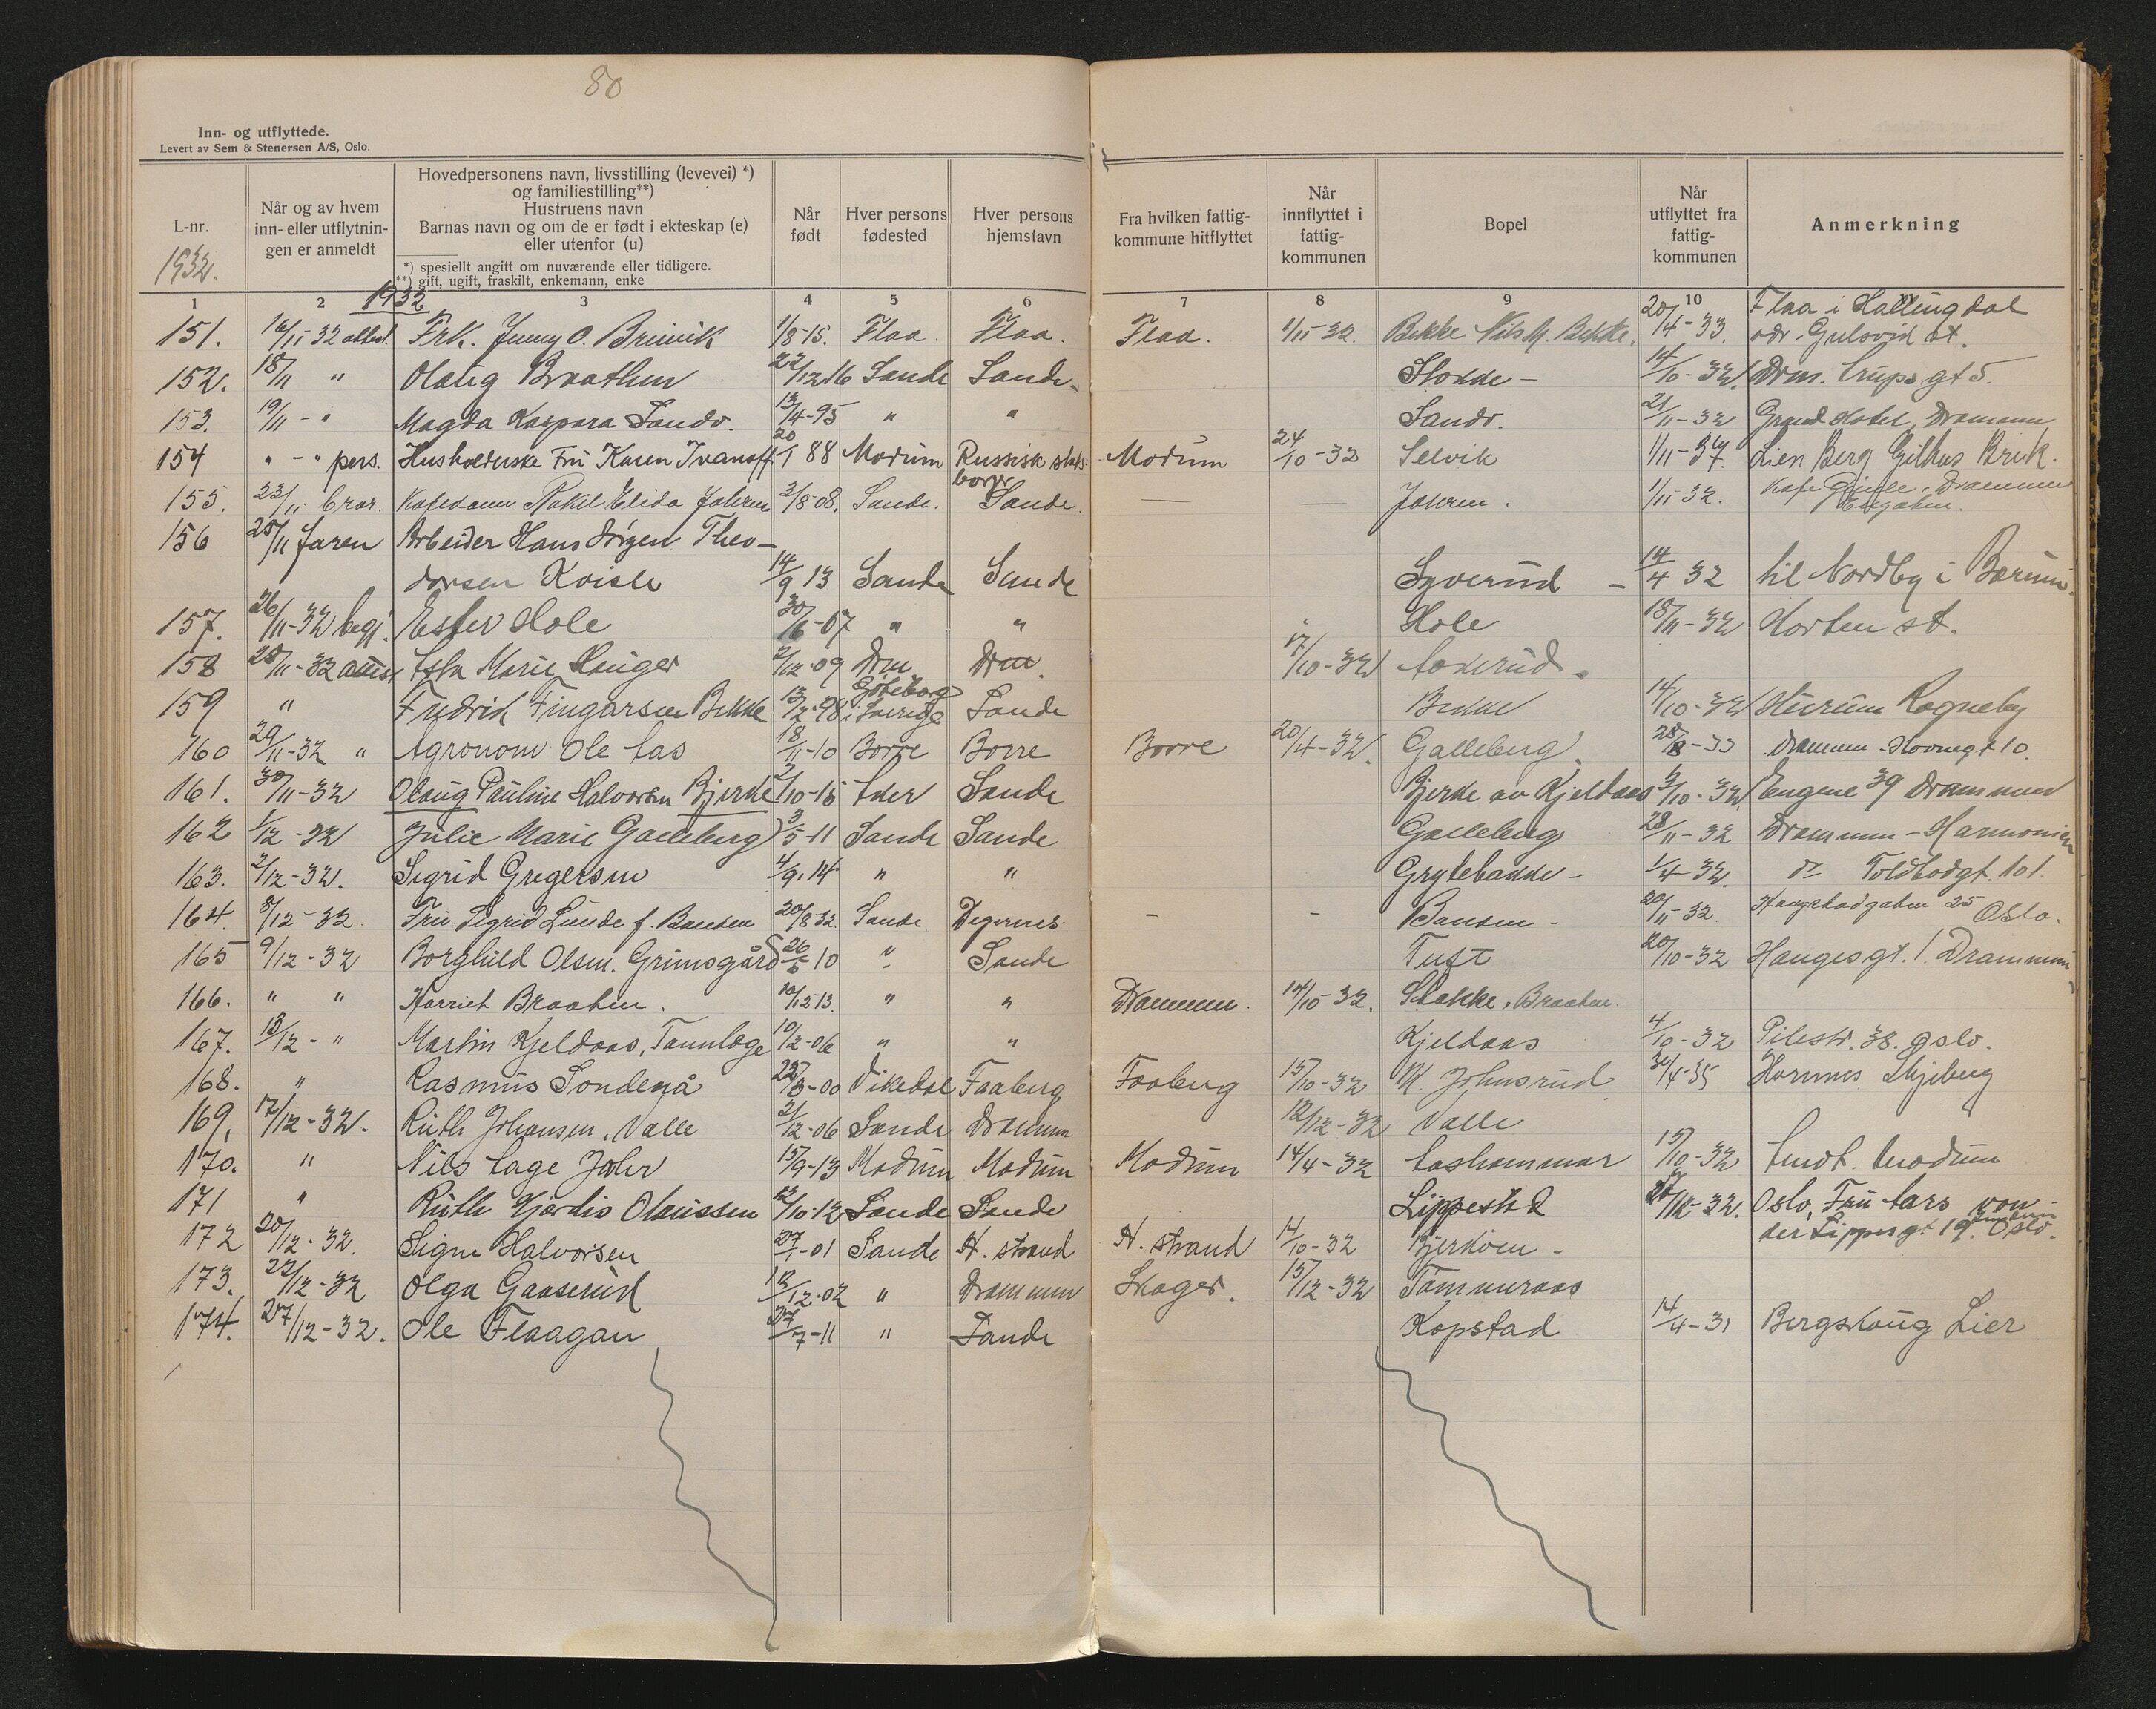 80
Inn- og utflyttede.
Levert av Sem & Stenersen A/S, Oslo.
L-nr.
1932.
Når og av hvem
inn- eller utflytnin-
gen er anmeldt
Hovedpersonens navn, livsstilling (levevei) *)
og familiestilling**)
Hustruens navn
Barnas navn og om de er født i ekteskap (e)
eller utenfor (u)
*) spesielt angitt om nuværende eller tidligere.
**) gift, ugift, fraskilt, enkemann, enke
Når
født
Hver persons
fødested
Hver persons
hjemstavn
Fra hvilken fattig-
kommune hitflyttet
Når
innflyttet i
fattig-
kommunen
Bopel
Når
utflyttet fra
fattig-
kommunen
Anmerkning
1 2 3 4 5 6 7 8 9 10
1932
151. 16/11-32 attest Frk. Jenny O. Brimik 1/8-15. Flaa. Flaa. Flaa. 1/11-32. Bekke Nils M. Bekke. 20/4-33. Flaa i Hallingdal
adr. Gulsvid st.
152. 18/11 " Olaug Braathen 22/12 16 Sande Sande Stokke - 14/10-32 Drm. Crups gt 5.
153. 19/11 - " Magda Kaspara Sandv. 13/4-95 " " Sandv. 21/11-32 Grand Hotel, Drammen
154 " - " pers. Husholderske Fru Karen Ivanoff 20/1 88 Modum Russisk stats-
borger Modum 24/10-32 Selvik 1/11-34. Lien Berg Gilhus Bruk.
155. 23/11 bror. Kafedame Rakel Elida 3/8-08. Sande. Sande. 1/11-32. Kafe Drammen
156 25/11 faren Arbeider Hans Jørgen Theo-
dorsen Kvisle 14/9 13 Sande Sande Syverud - 14/4 32 til Nordby i Bærum.
157. 26/11-32 begj. Ester Hole 30/6-07 " " Hole 18/11-32 Horten st.
158 28/11-32 Asta Marie Hauger 2/12-09 Drm Drm. 17/10-32 Askerud.
159 " Fredrik Fingarsen Bekke 13/2-98 Göteborg
i Sverige Sande Bekke 14/10-32 Hurum Rogneby
160 29/11-32 " Agronom Ole Aas 18/11-10 Borre Borre Borre 20/4-32. Galleberg. 28/8-33 Drammen - Hovnegt 10.
161. 30/11-32 Olaug Pauline Halvorsen Bjerke 2/10-15 Aker Sande Bjerke av Kjeldaas 3/10-32 Engene 39 Drammen
162 1/12-32 Julie Marie Galleberg 3/5-11 Sande Sande Galleberg 28/11-32 Drammen - Harmonien
163. 2/12-32. Sigrid Gregersen 4/9-14 " " Grytebakke - 1/4-32. do Toldbodgt. 101.
164. 8/12-32 Fru Sigrid Lunde f. Bansen 20/8 32. Sande Degernes. - - Bansen - 20/11-32. Haugstadgaten 25 Oslo.
165 9/12-32 Borghild Olsen. Grimsgård 26/5 10 " Sande Tuft 20/10-32 Haugesgt. 1. Drammen
166. " " Harriet Braaten. 10/12 13. " " Drammen. 14/10-32. Stokke, Braaten.
167. 13/12 - " Martin Kjeldaas, Tannlæge 10/2-06 " " Kjeldaas 4/10-32 Pilestr. 38. Oslo.
168. " Rasmus Søndenå 22/8-00 Vikedal Faaberg Faaberg 15/10-32 N. Johnsrud 30/4-35 Hornnes. Skjeberg
169. 17/12-32. Ruth Johansen, Valle 21/12-06 Sande Drammen 12/12-32 Valle
170. " Nils Aage Johr 15/9-13 Modum Modum Modum 14/4-32 Aashammar 15/10-32 Åmot. Modum
171 " Ruth Hjerdis Olaussen 12/10-12 Sande Sande Lippestad -32. Oslo, Fru Lars von
der Lippes gt 19. Oslo.
172 20/12-32. Signe Halvorsen 27/1-01 Sande H. strand H. strand 14/10-32 Bjerkøen -
173. 22/12-32 Olga Gaaserud 12/12-02 " Drammen Skoger. 15/12-32 Tømmeraas
174. 27/12-32. Ole Flaagan 27/7-11 " Sande Kopstad 14/4-31 Bergskaug Lier